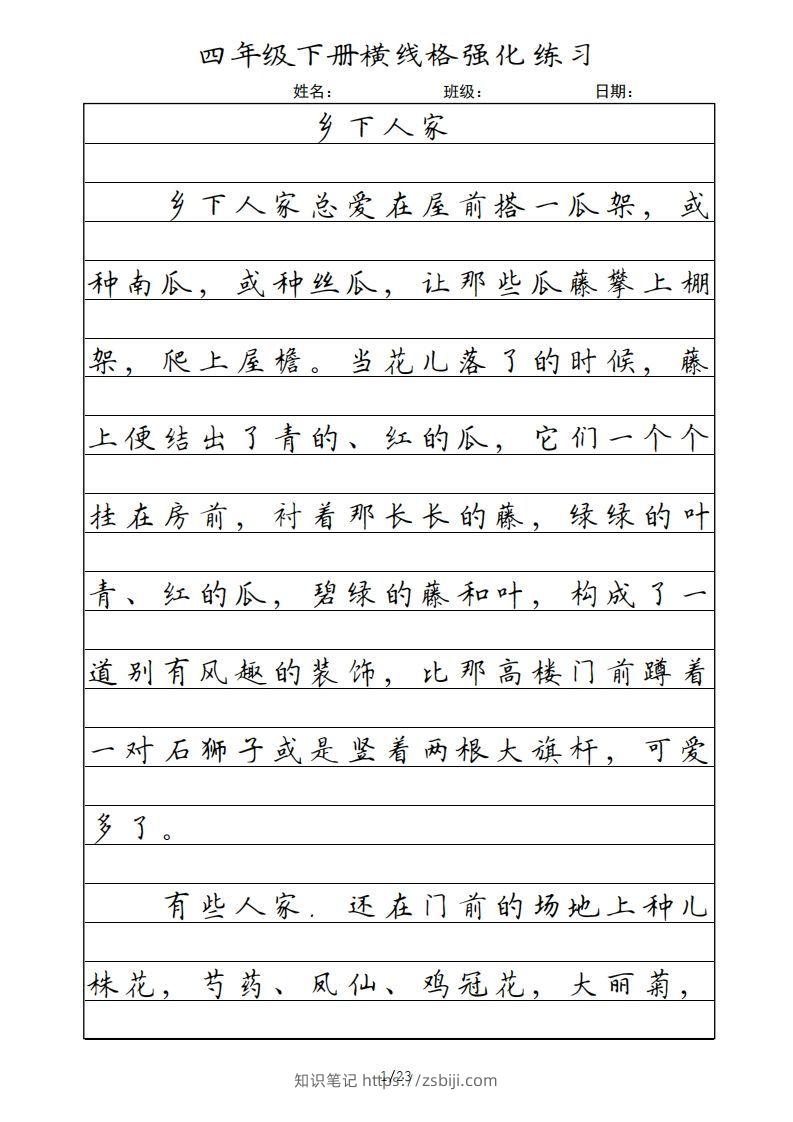 四年级下册横线格强化练习
姓名： 班级： 日期：
乡下人家
乡下人家总爱在屋前搭一瓜架，或
种南瓜，或种丝瓜，让那些瓜藤攀上棚
架，爬上屋檐。当花儿落了的时候，藤
上便结出了青的、红的瓜，它们一个个
挂在房前，衬着那长长的藤，绿绿的叶
青、红的瓜，碧绿的藤和叶，构成了一
道别有风趣的装饰，比那高楼门前蹲着
一对石狮子或是竖着两根大旗杆，可爱
多了。
有些人家．还在门前的场地上种儿
株花，芍药、凤仙、鸡冠花，大丽菊，
1/23
知识笔记 https://zsbiji.com